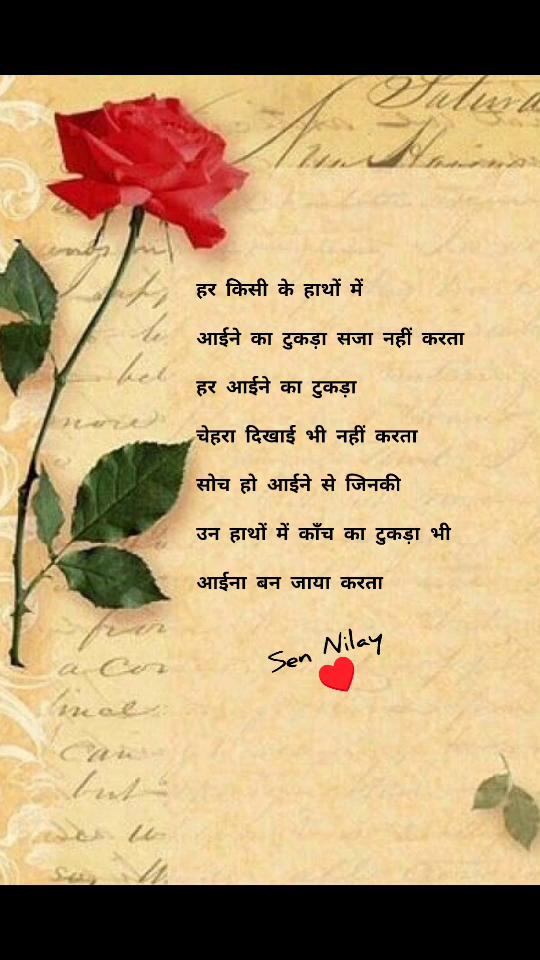 हर किसी के हाथों में
आईने का टुकड़ा सजा नहीं करता
हर आईने का टुकड़ा
चेहरा दिखाई भी नहीं करता
सोच हो आईने से जिनकी
उन हाथों में काँच का टुकड़ा भी
आईना बन जाया करता
Sen Nilay